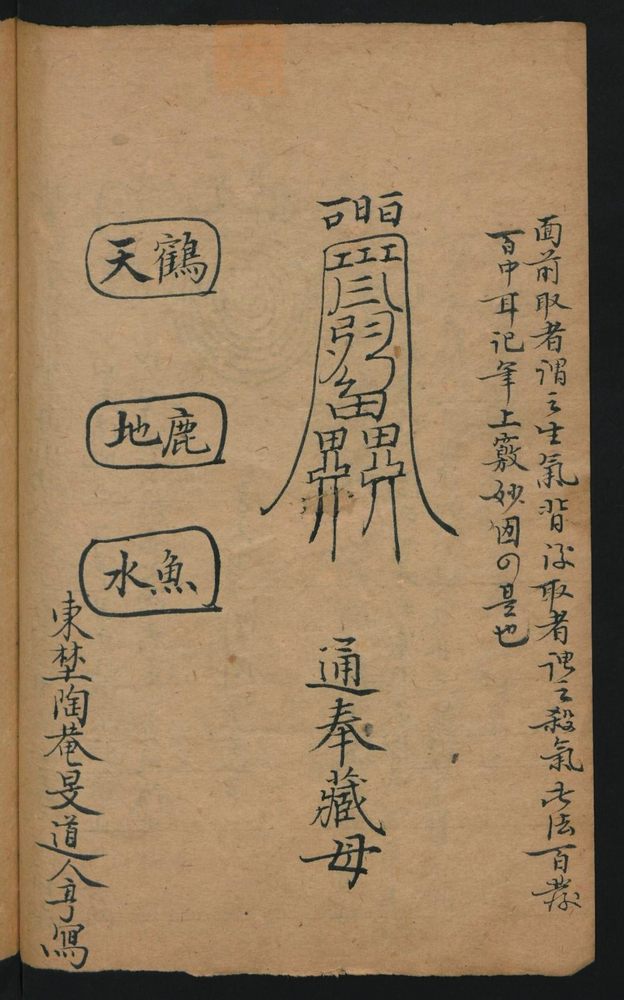 面前取者謂之生氣背後取者謂之殺氣此法百發
百中耳記年上竅妙因の是也
通奉藏母
鶴天
鹿地
魚水
東埜陶菴旻道人亨寫